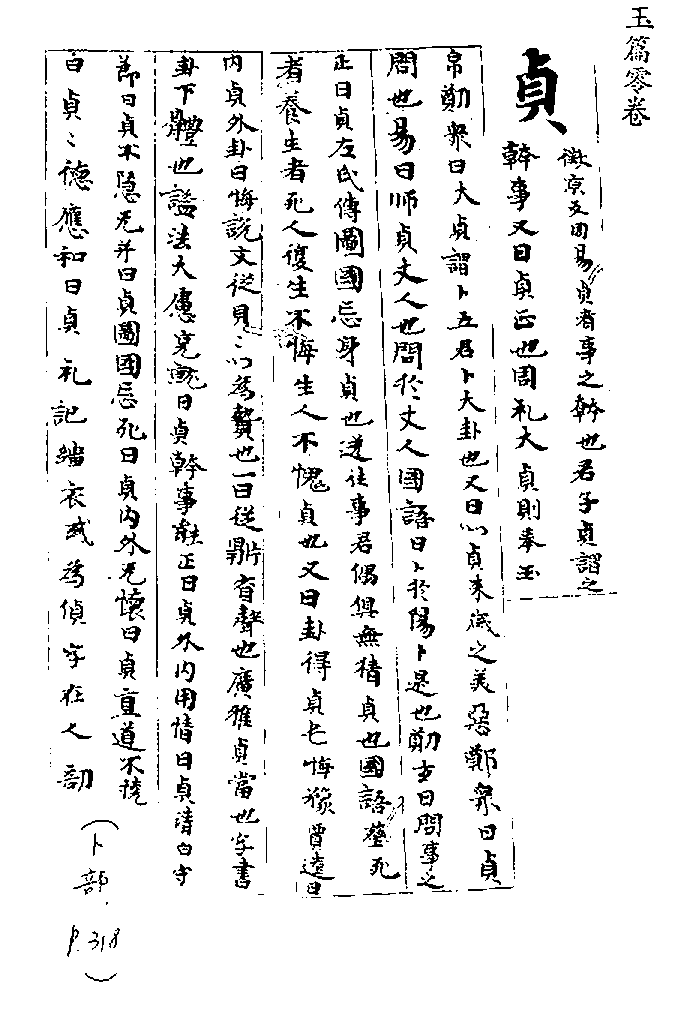 玉篇零卷
貞
徵京反周易貞者事之幹也君子貞謂之
幹事又曰貞正也周礼大貞則奉玉
帛鄭衆曰大貞謂卜立君卜大卦也又曰以貞来歲之美惡鄭衆曰貞
問也易曰师貞丈人也問於丈人國語曰卜於陽卜是也鄭玄曰問事之
正曰貞左氏傳圖國忘身貞也送往事君偶俱無猜貞也國語葬死
者養生者死人復生不悔生人不愧貞也又曰卦得貞屯悔豫賈逵曰
内貞外卦曰悔說文從貝〻以為贄也一曰從鼎省聲也廣雅貞當也字書
卦下體也謚法大慮克就曰貞幹事能正曰貞外内用情曰貞清白守
節曰貞不隱无并曰貞圖國忘死曰貞内外无懷曰貞直道不橈
曰貞〻德應和曰貞礼記緇衣或為偵字在人部
（卜部.
p.318）